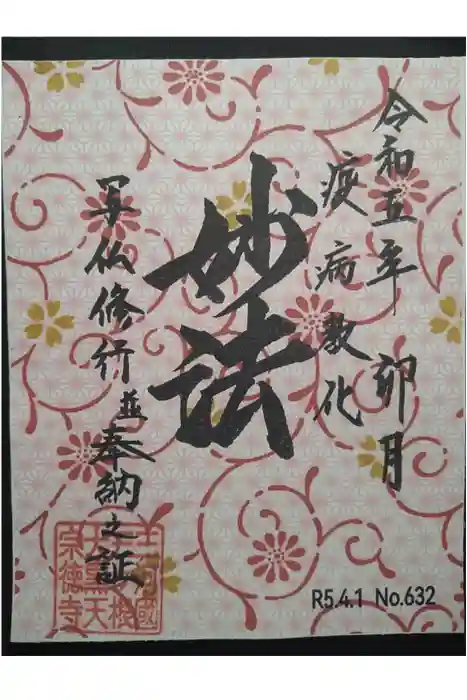 令和五年 卯月
疫病教化
妙法
写仏修行並奉納之証
三河國
大黒天
崇徳寺
R5.4.1 No.632